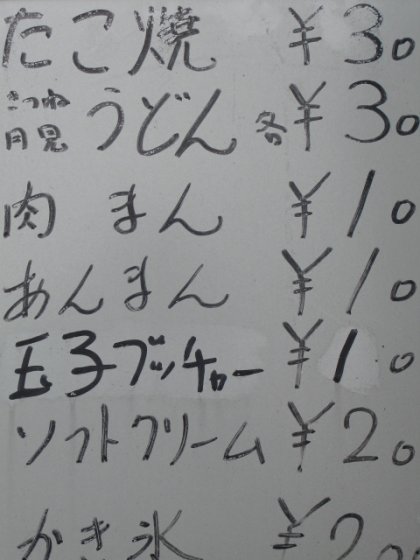 たこ焼 ¥30
きつね
月見 うどん 各¥30
肉まん ¥10
あんまん ¥10
玉子ブッチャー ¥10
ソフトクリーム ¥20
かき氷 ¥20